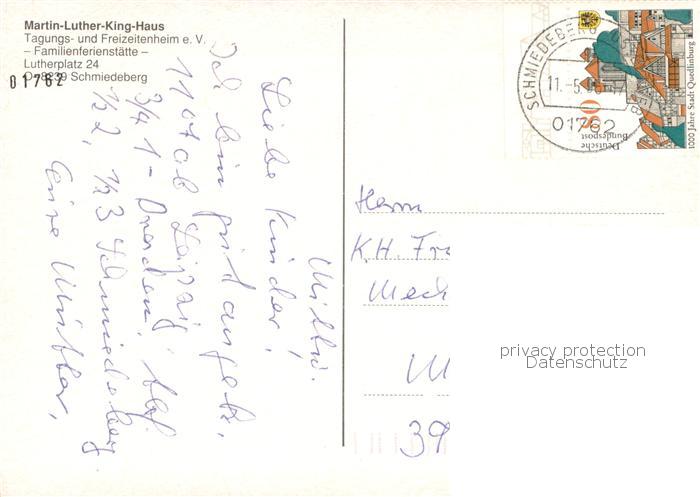 Martin-Luther-King-Haus
Tagungs- und Freizeitenheim e. V.
– Familienferienstätte –
Lutherplatz 24
O-8239 Schmiedeberg
01762
Mittw.
Liebe Kinder,
Ich bin gut angek.
ab Leipzig
3/4 1 - Dresden.
1/2 2, 1/2 3 Schmiedeberg
Eure Mutter,
SCHMIEDEBERG
11.-5.
01762
Deutsche
Bundespost
1000 Jahre Stadt Quedlinburg
Herrn
K.H. Fr
39
privacy protection
Datenschutz